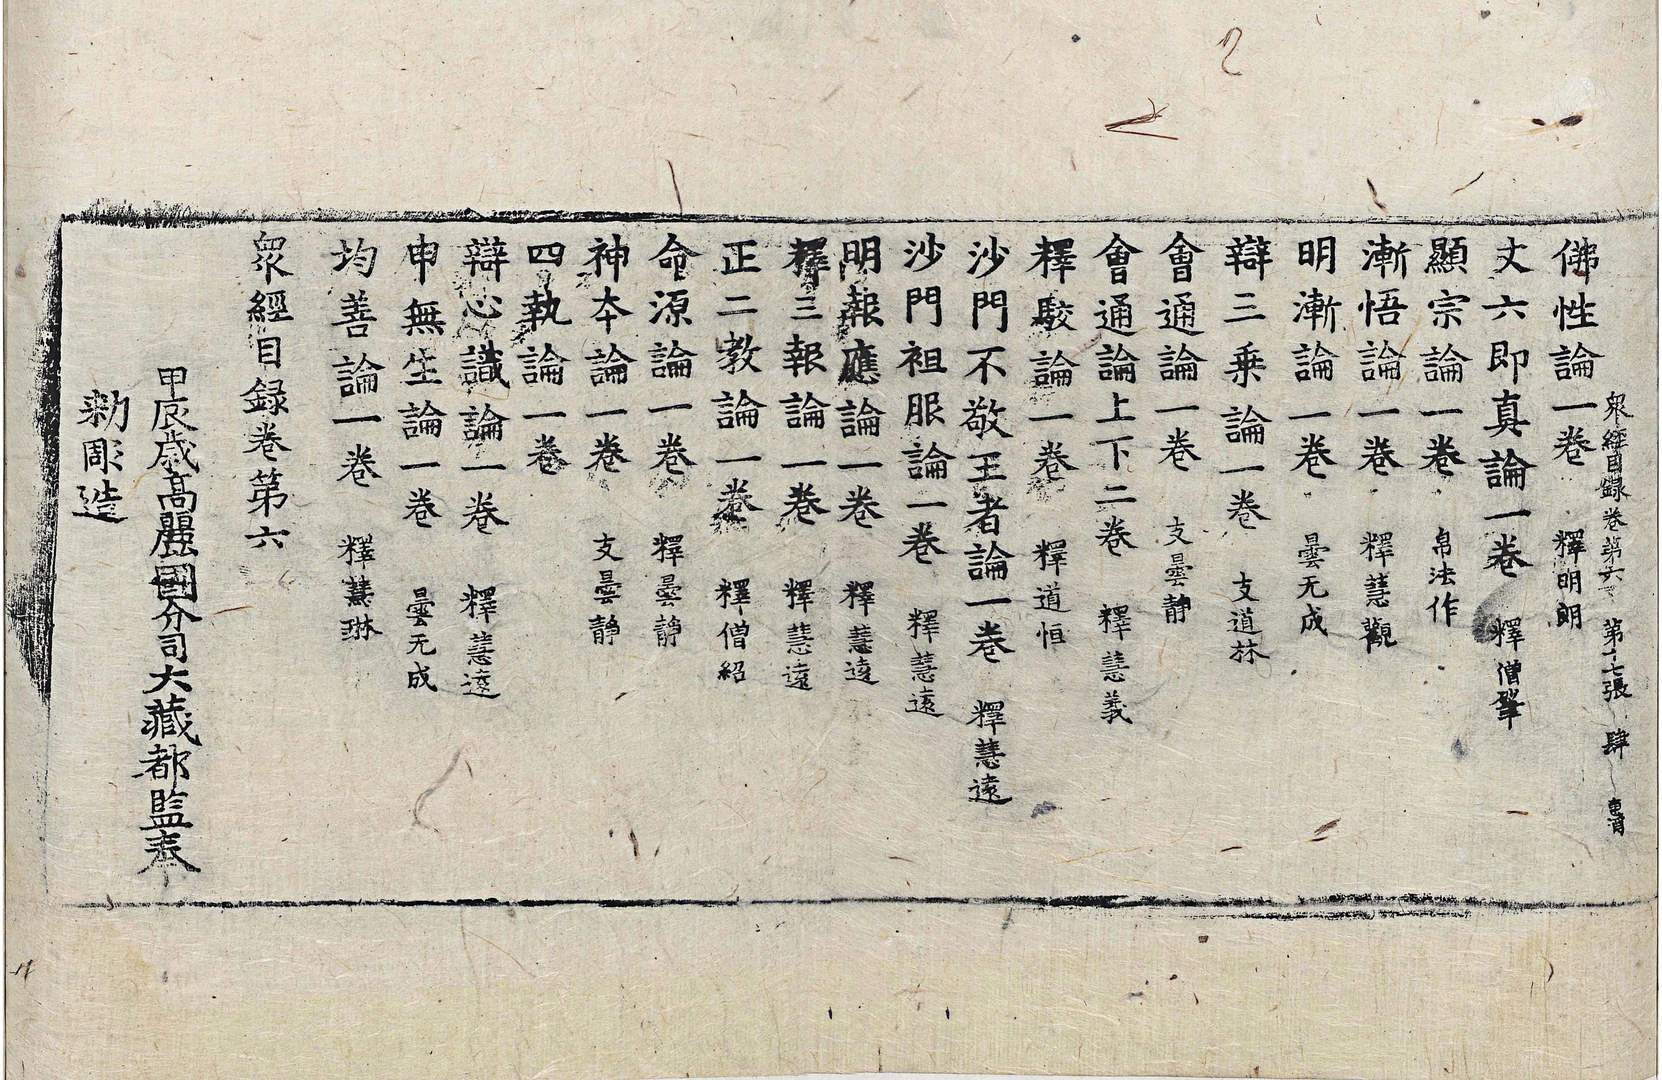 衆經目録卷第六 第十七張 肆
佛性論一卷 釋明朗
丈六即真論一卷 釋僧肇
顯宗論一卷 帛法作
漸悟論一卷 釋慧觀
明漸論一卷 曇无成
辯三乘論一卷 支道林
會通論一卷 支曇静
會通論上下二卷 釋慧義
釋駮論一卷 釋道恒
沙門不敬王者論一卷 釋慧遠
沙門袒服論一卷 釋慧遠
明報應論一卷 釋慧遠
釋三報論一卷 釋慧遠
正二教論一卷 釋僧紹
命源論一卷 釋曇静
神本論一卷 支曇静
四執論一卷
辯心識論一卷 釋慧遠
申無生論一卷 曇无成
均善論一卷 釋慧琳
衆經目録卷第六
甲辰歳高麗國分司大藏都監奉
勑彫造